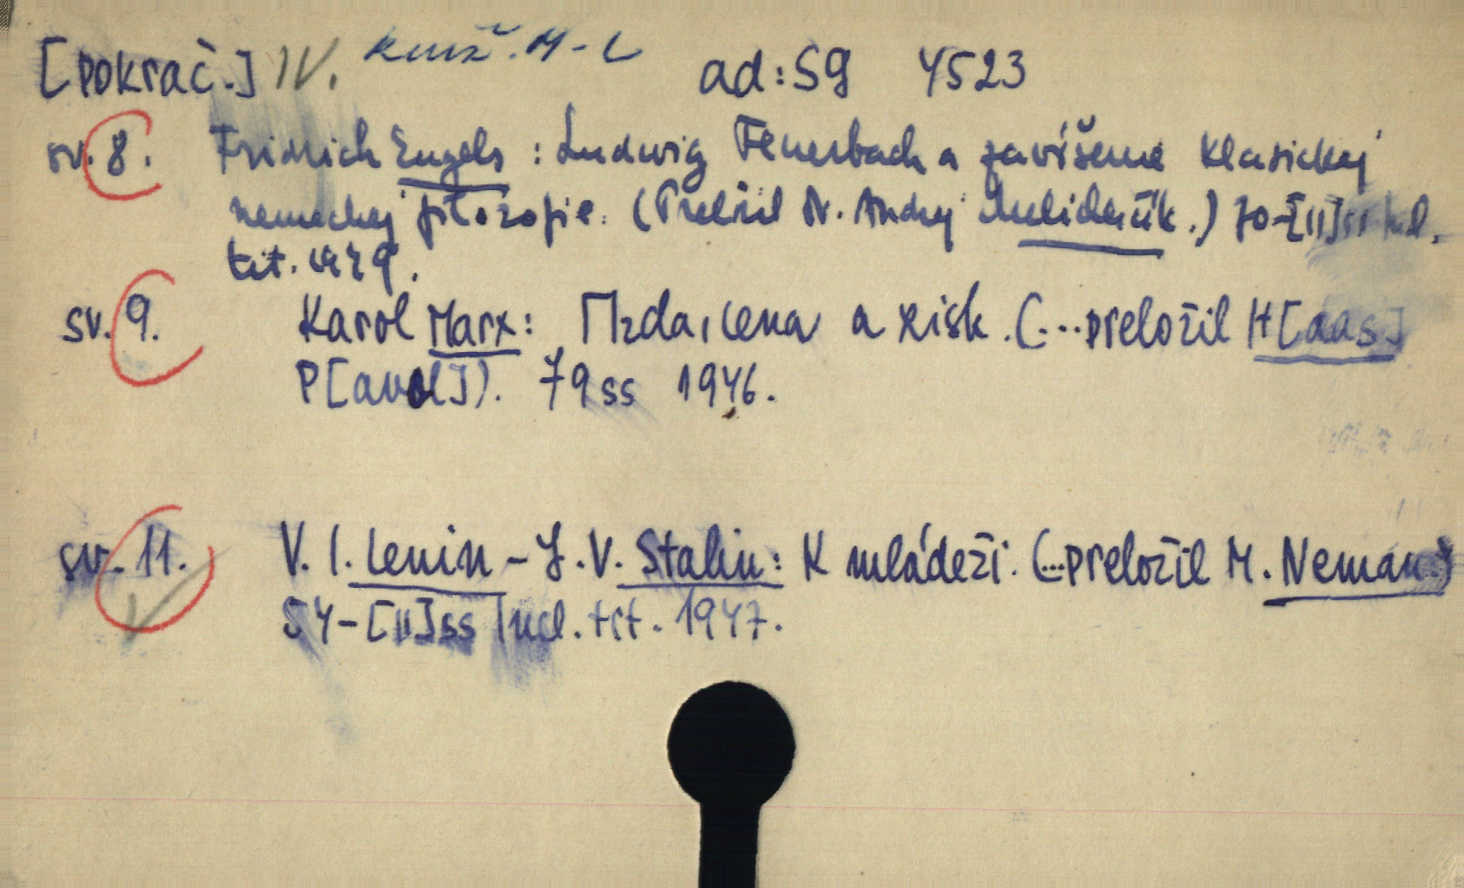 [pokrač.] IV. Kniž. M-L ad: SG 4523
sv. 8. Fridrich Engels: Ludwig Feuerbach a zavŕšenie klasickej
nemeckej filozofie. (Preložil Dr. Andrej) 70-[II]ss Incl.
tit. 1949.
sv. 9. Karol Marx: Mzda, cena a zisk. (...preložil H[aas]
P[avol]). 79ss 1946.
sv. 11. V. I. Lenin - J. V. Stalin: K mládeži. (...preložil M. Neman.)
54-[II]ss Incl. tit. 1947.